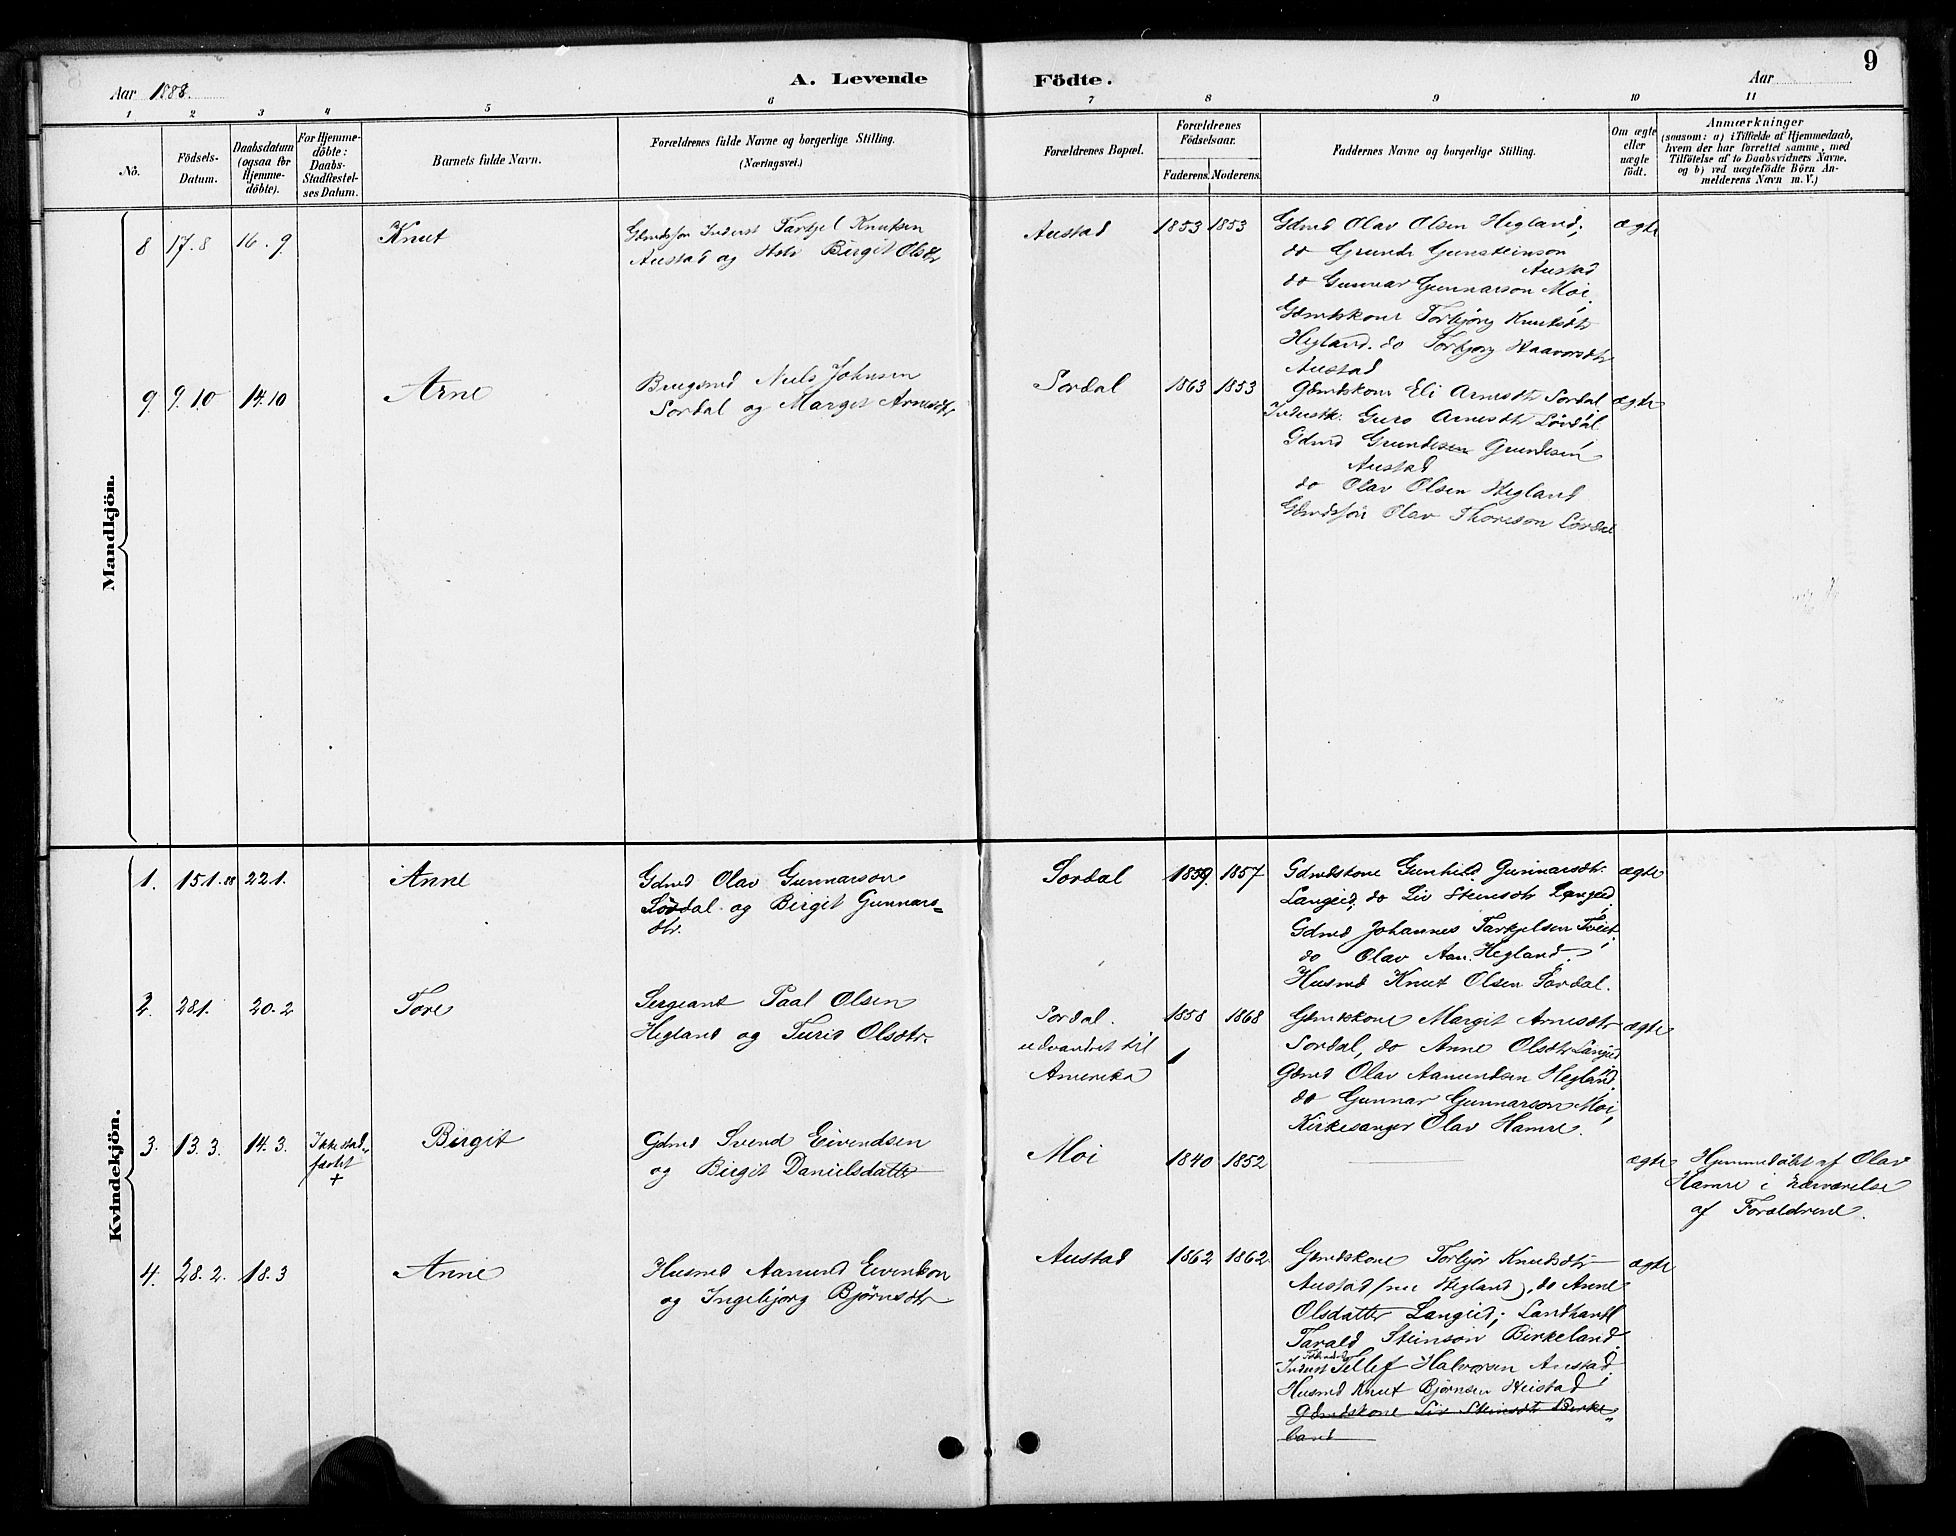 Aar 1888.
A. Levende
Födte.
Aar
9
1 2 3 4 5 6 7 8 9 10 11
Nö.
Födsels-Datum.
Daabsdatum (ogsaa for Hjemme-döbte).
For Hjemme-döbte: Daabs-Stadfæstel-ses Datum.
Barnets fulde Navn.
Forældrenes fulde Navne og borgerlige Stilling.
(Næringsvei.)
Forældrenes Bopæl.
Forældrenes Födselsaar.
Faderens. Moderens.
Faddernes Navne og borgerlige Stilling.
Om ægte eller uægte födt.
Anmærkninger
(saasom: a) i Tilfælde af Hjemmedaab,
hvem der har forrettet samme, med
Tilföielse af to Daabsvidners Navne,
og b) ved uægtefödte Börn An-
melderens Navn m. V.)
Mandkjön.
8 17.8 16.9 Knut
Gdmdssøn Inderst Tarkjel Knutsen
Austad og Hstr Birgit Olsdtr
Austad 1853 1853
Gdmd Olav Olsen Hegland,
do Grunde Gunsteinson
Austad
do Gunnar Gunnarson Moi,
Gdmdskone Torbjörg Knutsdtr
Hegland. do Torbjorg Haavorsdtr
Austad
ægte
9 9.10 14.10 Arne
Brugsmd Niels Johnsen
Sordal og Marget Arnesdtr
Sordal 1863 1853
Gdmdskone Eli Arnesdtr Sordal,
Inderstk. Guro Arnesdtr Lövdal
Gdmd Grundesen Grundesen
Austad
do Olav Olsen Hegland
Gdmdssøn Olav Thoreson Lövdal
ægte
Kvindekjön.
1. 15.1.88 22.1. Anne
Gdmd Olav Gunnarson
Sordal og Birgit Gunnars-
dtr.
Sordal 1859. 1857
Gdmdskone Gunhild Gunnarsdtr.
Langeid, do Liv Steinsdtr Langeid,
Gdmd Johannes Tarkjelsen Tveit,
do Olav Aan. Hegland.
Husmd Knut Olsen Sordal.
ægte
2. 28.1. 20.2 Tore
Sergeant Paal Olsen
Hegland og Turid Olsdtr.
Sordal.
udvandret til
Amerika
1858 1868
Gdmdskone Margit Arnesdtr
Sordal, do Anne Olsdtr Langeid
Gdmd Olav Aamundsen Hegland,
do Gunnar Gunnarson Moi,
Kirkesanger Olav Hamre.
ægte
3. 13.3. 14.3. Ikke stad-
fæstet
+
Birgit
Gdmd Svend Eivendsen
og Birgit Danielsdatter
Moi 1840 1852
ægte
Hjemmedöbt af Olav
Hamre i nærværelse
af Forældrene.
4. 28.2. 18.3 Anne
Husmd Aamund Eivendson
og Ingebjörg Björnsdtr
Austad 1862 1862.
Gdmdskone Torbjör Knutsdtr
Austad (nu Hegland), do Anne
Olsdatter Langeid; Landhandl
Tarald Steinson Birkeland.
Inderst Tellef Halvorsen Austad,
Husmd Knut Björnsen Heistad
Gdmdskone Liv Steinsdtr Birke-
land
ægte